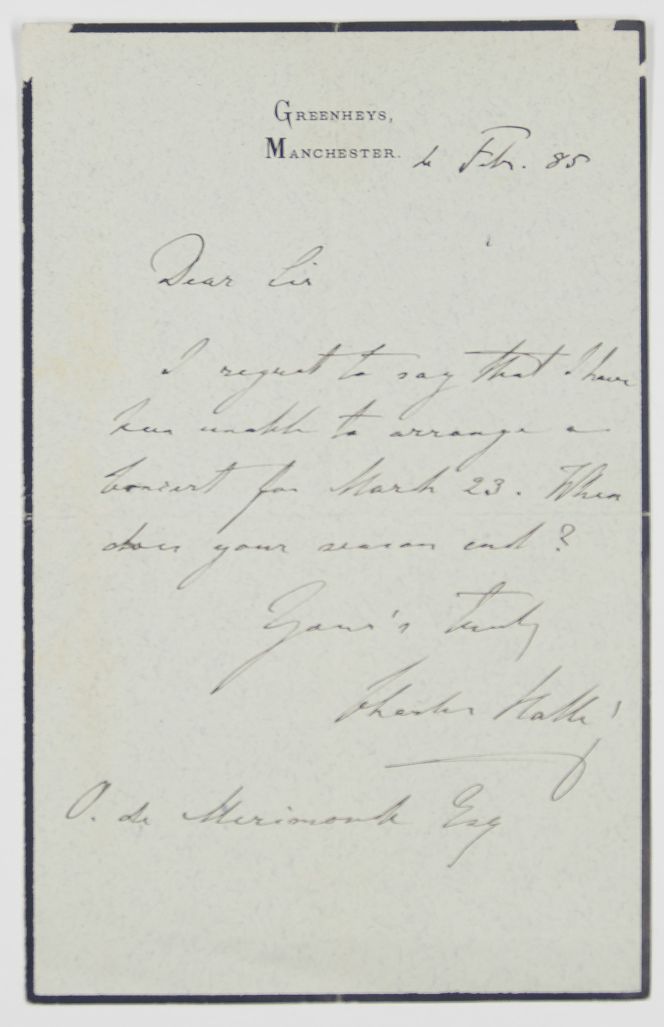 GREENHEYS,
MANCHESTER. 4 Feb. 85
Dear Sir
I regret to say that I have
been unable to arrange a
Concert for March 23. When
does your season end?
Your's truly
Charles Hallé
O. de Merimonte Esq